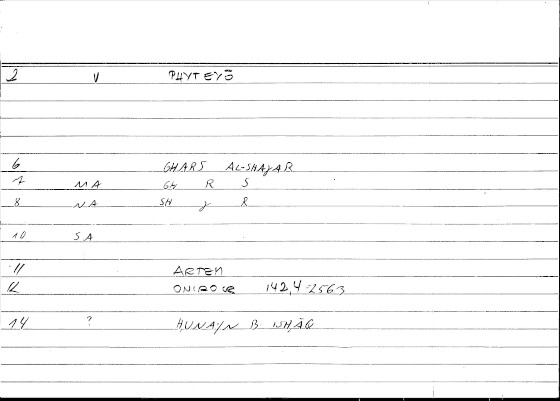 2 V PHYTEYŌ
6 GHARS AL-SHAJAR
7 MA GH R S
8 NA SH J R
10 SA
11 ARTEM
12 ONIROCR 142,4 2563
14 ? ḤUNAYN B ISḤĀQ